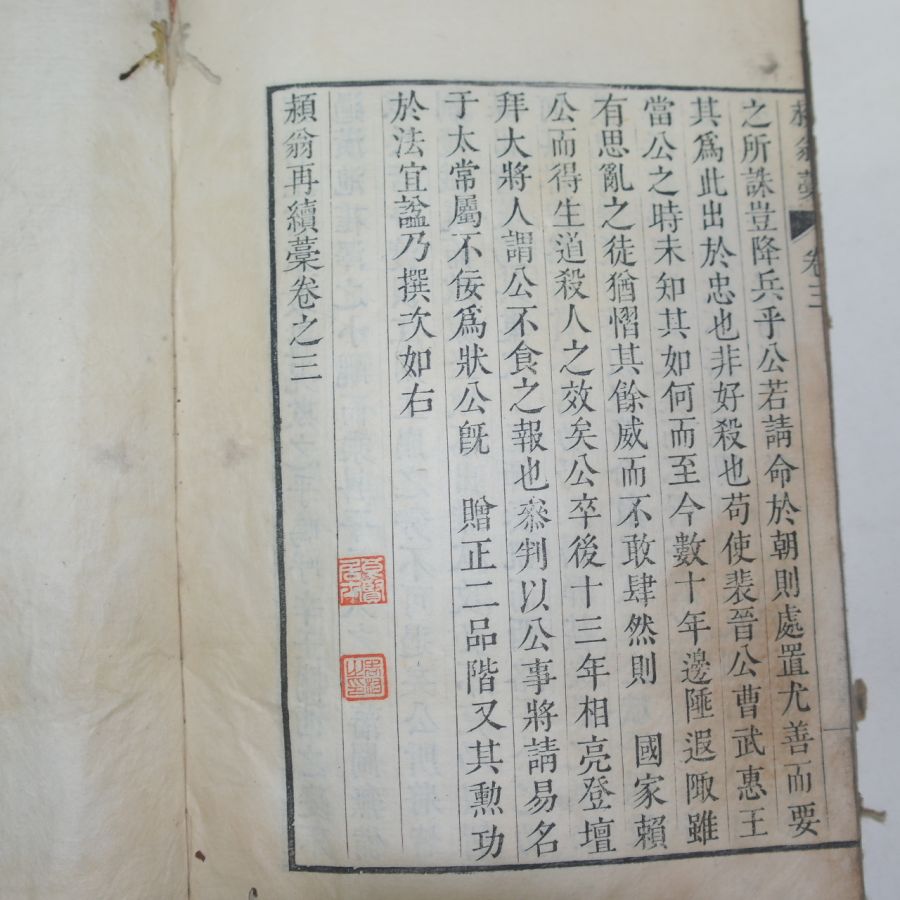 卷三
之所誅豈降兵乎公若請命於朝則處置尤善而要
其爲此出於忠也非好殺也苟使裴晉公曹武惠王
當公之時未知其如何而至今數十年邊陲遐陬雖
有思亂之徒猶慴其餘威而不敢肆然則 國家賴
公而得生道殺人之效矣公卒後十三年相亮登壇
拜大將人謂公不食之報也叅判以公事將請易名
于太常屬不佞爲狀公旣 贈正二品階又其勳功
於法宜謚乃撰次如右
頮翁再續藁卷之三